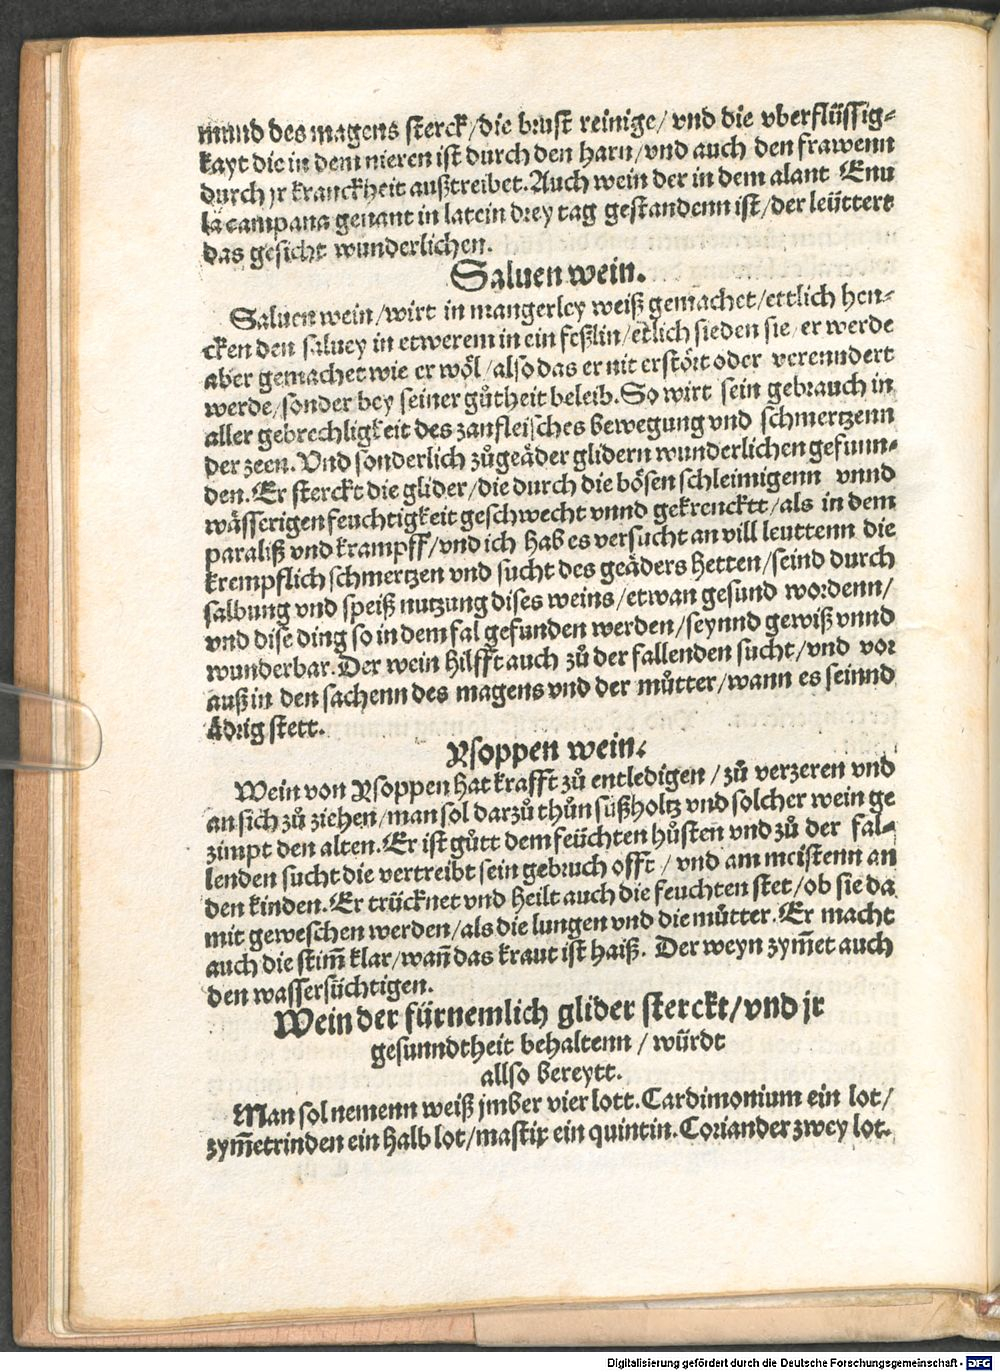 mund des magens sterck/die brust reinige/ vnd die vberflüssig-
kayt die in dem nieren ist durch den harn/vnd auch den frawenn
durch jr kranckheit außtreibet. Auch wein der in dem alant Enu
la campana genant in latein drey tag gestandenn ist/der leüttert
das gesicht wunderlichen.
Saluen wein.
Saluen wein/wirt in mangerley weiß gemachet/ettlich hen-
cken den saluey in etwerem in ein feßlin/etlich sieden sie/er werde
aber gemachet wie er wöl/also das er nit erstört oder verenndert
werde/sonder bey seiner gůtheit beleib. So wirt sein gebrauch in
aller gebrechligkeit des zanfleisches bewegung vnd schmertzenn
der zeen. Vnd sonderlich zůgeäder glidern wunderlichen gefunn-
den. Er sterckt die glider/die durch die bösen schleimigenn vnnd
wässerigen feuchtigkeit geschwecht vnnd gekrencktt/als in dem
paraliß vnd krampff/vnd ich hab es versucht an vill leuttenn die
krempflich schmertzen vnd sucht des geäders hetten/seind durch
salbung vnd speiß nutzung dises weins/etwan gesund wordenn/
vnd dise ding so in dem fal gefunden werden/seynnd gewiß vnnd
wunderbar. Der wein hilfft auch zů der fallenden sucht/vnd vor
auß in den sachenn des magens vnd der můtter/wann es seinnd
ådrig stett.
Ysoppen wein.
Wein von Ysoppen hat krafft zů entledigen/zů verzeren vnd
an sich zů ziehen/man sol darzů thůn süßholtz vnd solcher wein ge
zimpt den alten. Er ist gůtt dem feüchten hůsten vnd zů der fal-
lenden sucht die vertreibt sein gebruch offt/vnd am meistenn an
den kinden. Er trücknet vnd heilt auch die feuchten stet/ob sie da
mit geweschen werden/als die lungen vnd die můtter. Er macht
auch die stim̃ klar/wañ das kraut ist haiß. Der weyn zym̃et auch
den wassersüchtigen.
Wein der fürnemlich glider sterckt/vnd jr
gesunndtheit behaltenn/würdt
allso bereytt.
Man sol nemenn weiß jmber vier lott. Cardimonium ein lot/
zym̃etrinden ein halb lot/mastix ein quintin. Coriander zwey lot.
Digitalisierung gefördert durch die Deutsche Forschungsgemeinschaft - DFG